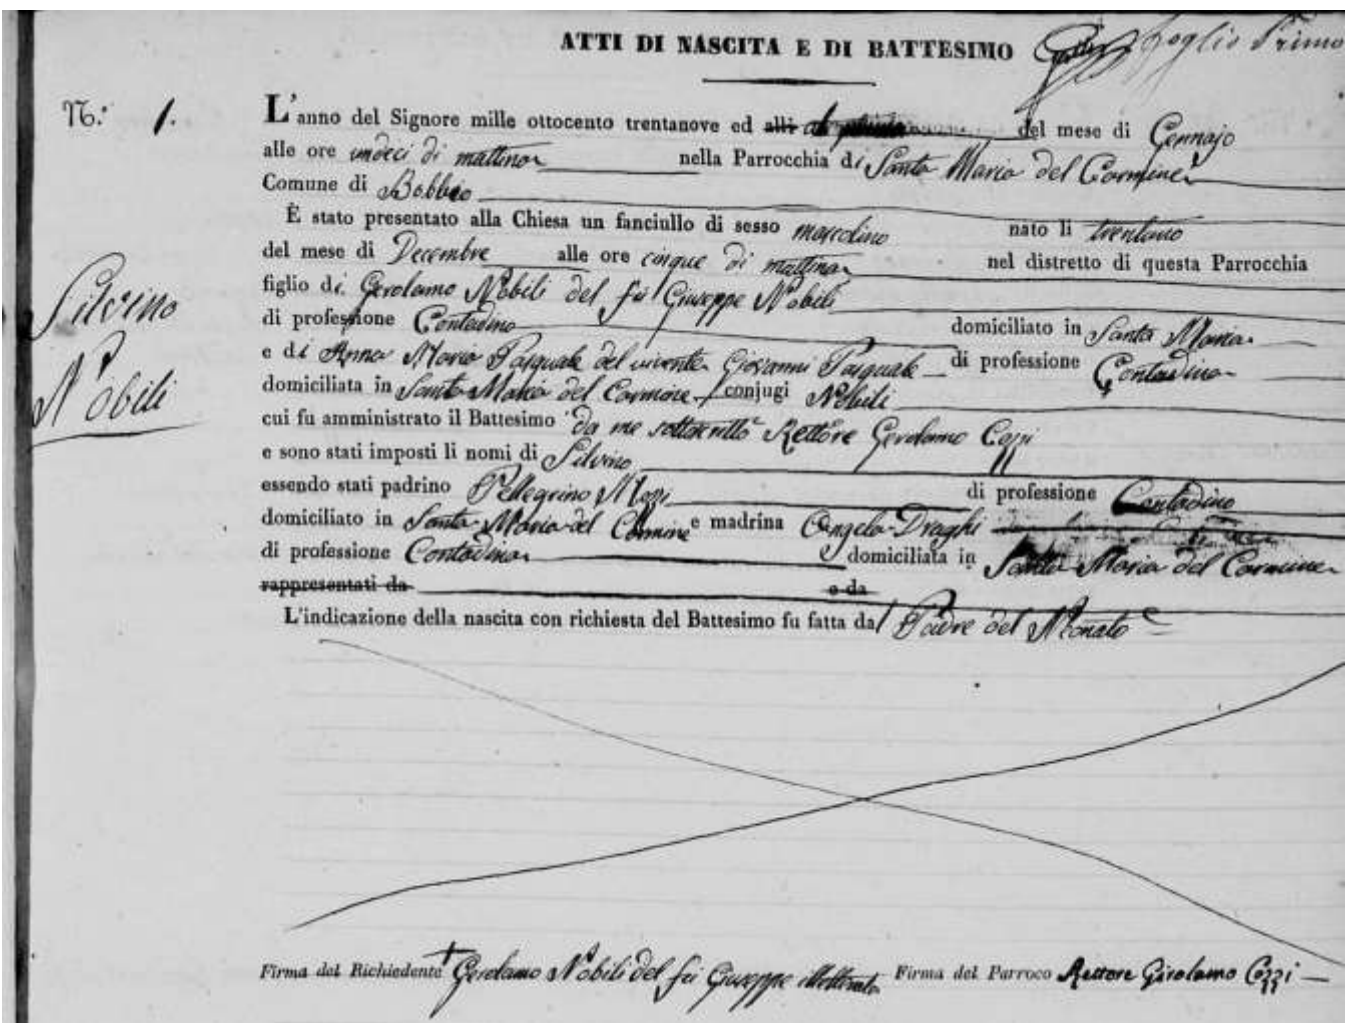 ATTI DI NASCITA E DI BATTESIMO foglio Primo
N.° 1.
L'anno del Signore mille ottocento trentanove ed alli del mese di Gennajo
alle ore undeci di mattina nella Parrocchia di Santa Maria del Carmine
Comune di Bobbio
È stato presentato alla Chiesa un fanciullo di sesso mascolino nato li trentuno
del mese di Decembre alle ore cinque di mattina nel distretto di questa Parrocchia
Silvino
Nobili
figlio di Gerolamo Nobili del fu Giuseppe Nobili
di professione Contadino domiciliato in Santa Maria
e di Anna Maria Pasquale del vivente Giovanni Pasquale di professione Contadina
domiciliata in Santa Maria del Carmine conjugi Nobili
cui fu amministrato il Battesimo da me sottoscritto Rettore Gerolamo Cozzi
e sono stati imposti li nomi di Silvino
essendo stati padrino Pellegrino di professione Contadino
domiciliato in Santa Maria del Carmine e madrina Angela Draghi
di professione Contadina domiciliata in Santa Maria del Carmine
rappresentati da e da
L'indicazione della nascita con richiesta del Battesimo fu fatta dal Padre del Neonato
Firma del Richiedente + Gerolamo Nobili del fu Giuseppe illetterato Firma del Parroco Rettore Girolamo Cozzi